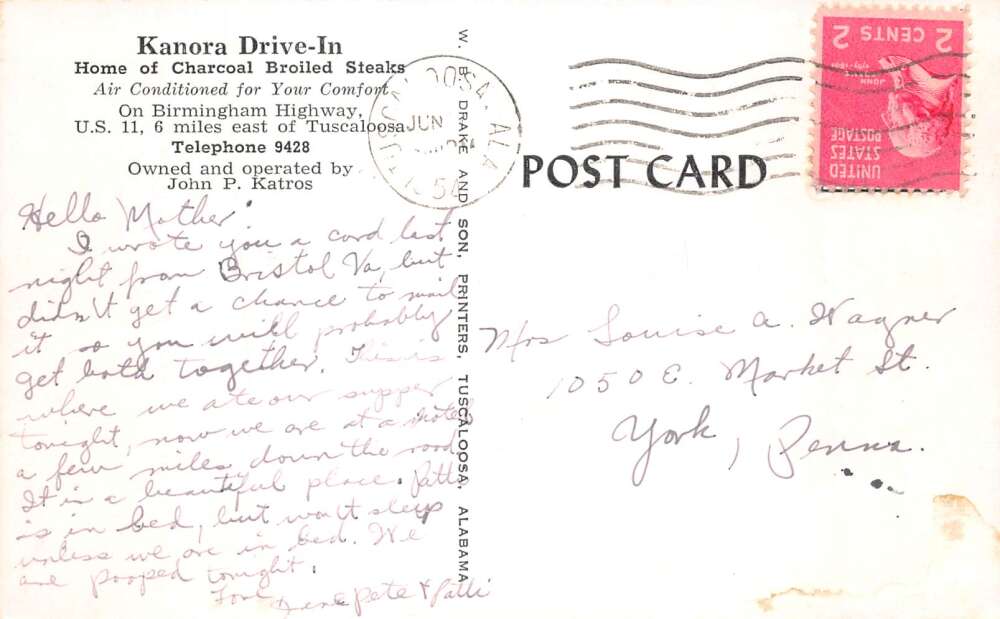 Kanora Drive-In
Home of Charcoal Broiled Steaks
Air Conditioned for Your Comfort
On Birmingham Highway,
U.S. 11, 6 miles east of Tuscaloosa
Telephone 9428
Owned and operated by
John P. Katros
Hello Mother,
I wrote you a card last
night from Bristol Va, but
didn't get a chance to mail
it so you will probably
get both together. This is
where we ate our supper
tonight, now we are at a motel
a few miles down the road
It is a beautiful place. Patti
is in bed, but won't sleep
unless we are in bed. We
are pooped tonight.
Love
Pete & Patti
W. B. DRAKE AND SON, PRINTERS, TUSCALOOSA, ALABAMA
TUSCALOOSA, ALA
JUN
54
POST CARD
UNITED
STATES
POSTAGE
JOHN
2 CENTS 2
Mrs Louise A. Wagner
1050 E. Market St.
York, Penna.